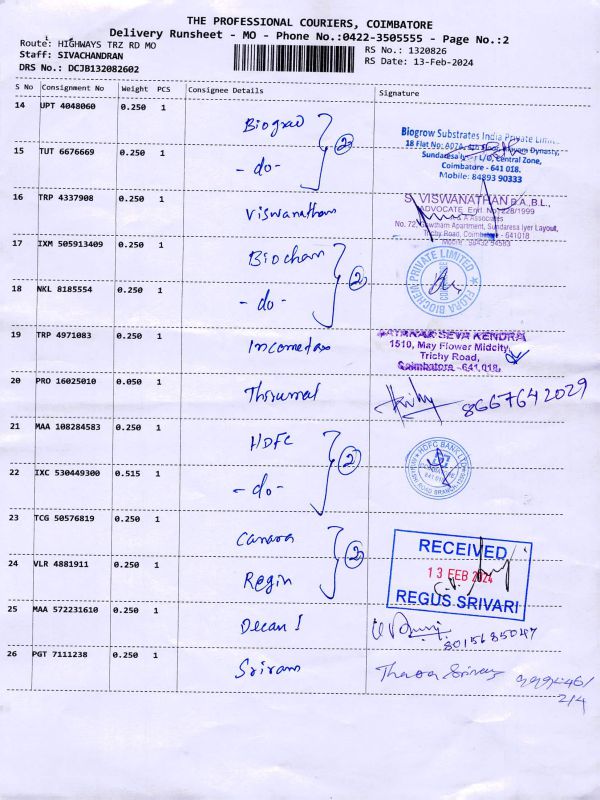 THE PROFESSIONAL COURIERS, COIMBATORE
Delivery Runsheet - MO - Phone No.:0422-3505555 - Page No.:2
Route: HIGHWAYS TRZ RD MO
RS No.: 1320826
Staff: SIVACHANDRAN
RS Date: 13-Feb-2024
DRS No.: DCJB132082602
S No Consignment No Weight PCS Consignee Details Signature
14 UPT 4048060 0.250 1 Biograd 2
Biogrow Substrates India Private Limited
15 TUT 6676669 0.250 1 - do -
Sundaresa Iyer L/O, Central Zone,
Coimbatore - 641 018.
Mobile: 84893 90333
16 TRP 4337908 0.250 1 Viswanatham
S. VISWANATHAN B.A.,B.L.,
ADVOCATE, Enrl. No: 228/1999
& A Associates
No. 72, Gowtham Apartment, Sundaresa Iyer Layout,
Trichy Road, Coimbatore - 641018
Mobile : 98432 54583
17 IXM 505913409 0.250 1 Biocham 2
18 NKL 8185554 0.250 1 - do -
FLORA BIOCHEM PRIVATE LIMITED
19 TRP 4971083 0.250 1 Incometax
SEVA KENDRA
1510, May Flower Midcity,
Trichy Road,
Coimbatore - 641 018.
20 PRO 16025010 0.050 1 Thirumal 8667642029
21 MAA 108284583 0.250 1 HDFC 2
HDFC BANK LTD
22 IXC 530449300 0.515 1 - do -
23 TCG 50576819 0.250 1 Canara 2
RECEIVED
13 FEB 2024
24 VLR 4881911 0.250 1 Regin
REGUS SRIVARI
25 MAA 572231610 0.250 1 Decan 1
8015685047
26 PGT 7111238 0.250 1 Sriram